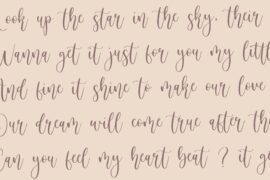 Look up the star in the sky, their
Wanna get it just for you my littl
And fine it shine to make our love
Our dream will come true after th
Can you feel my heart beat ? it go